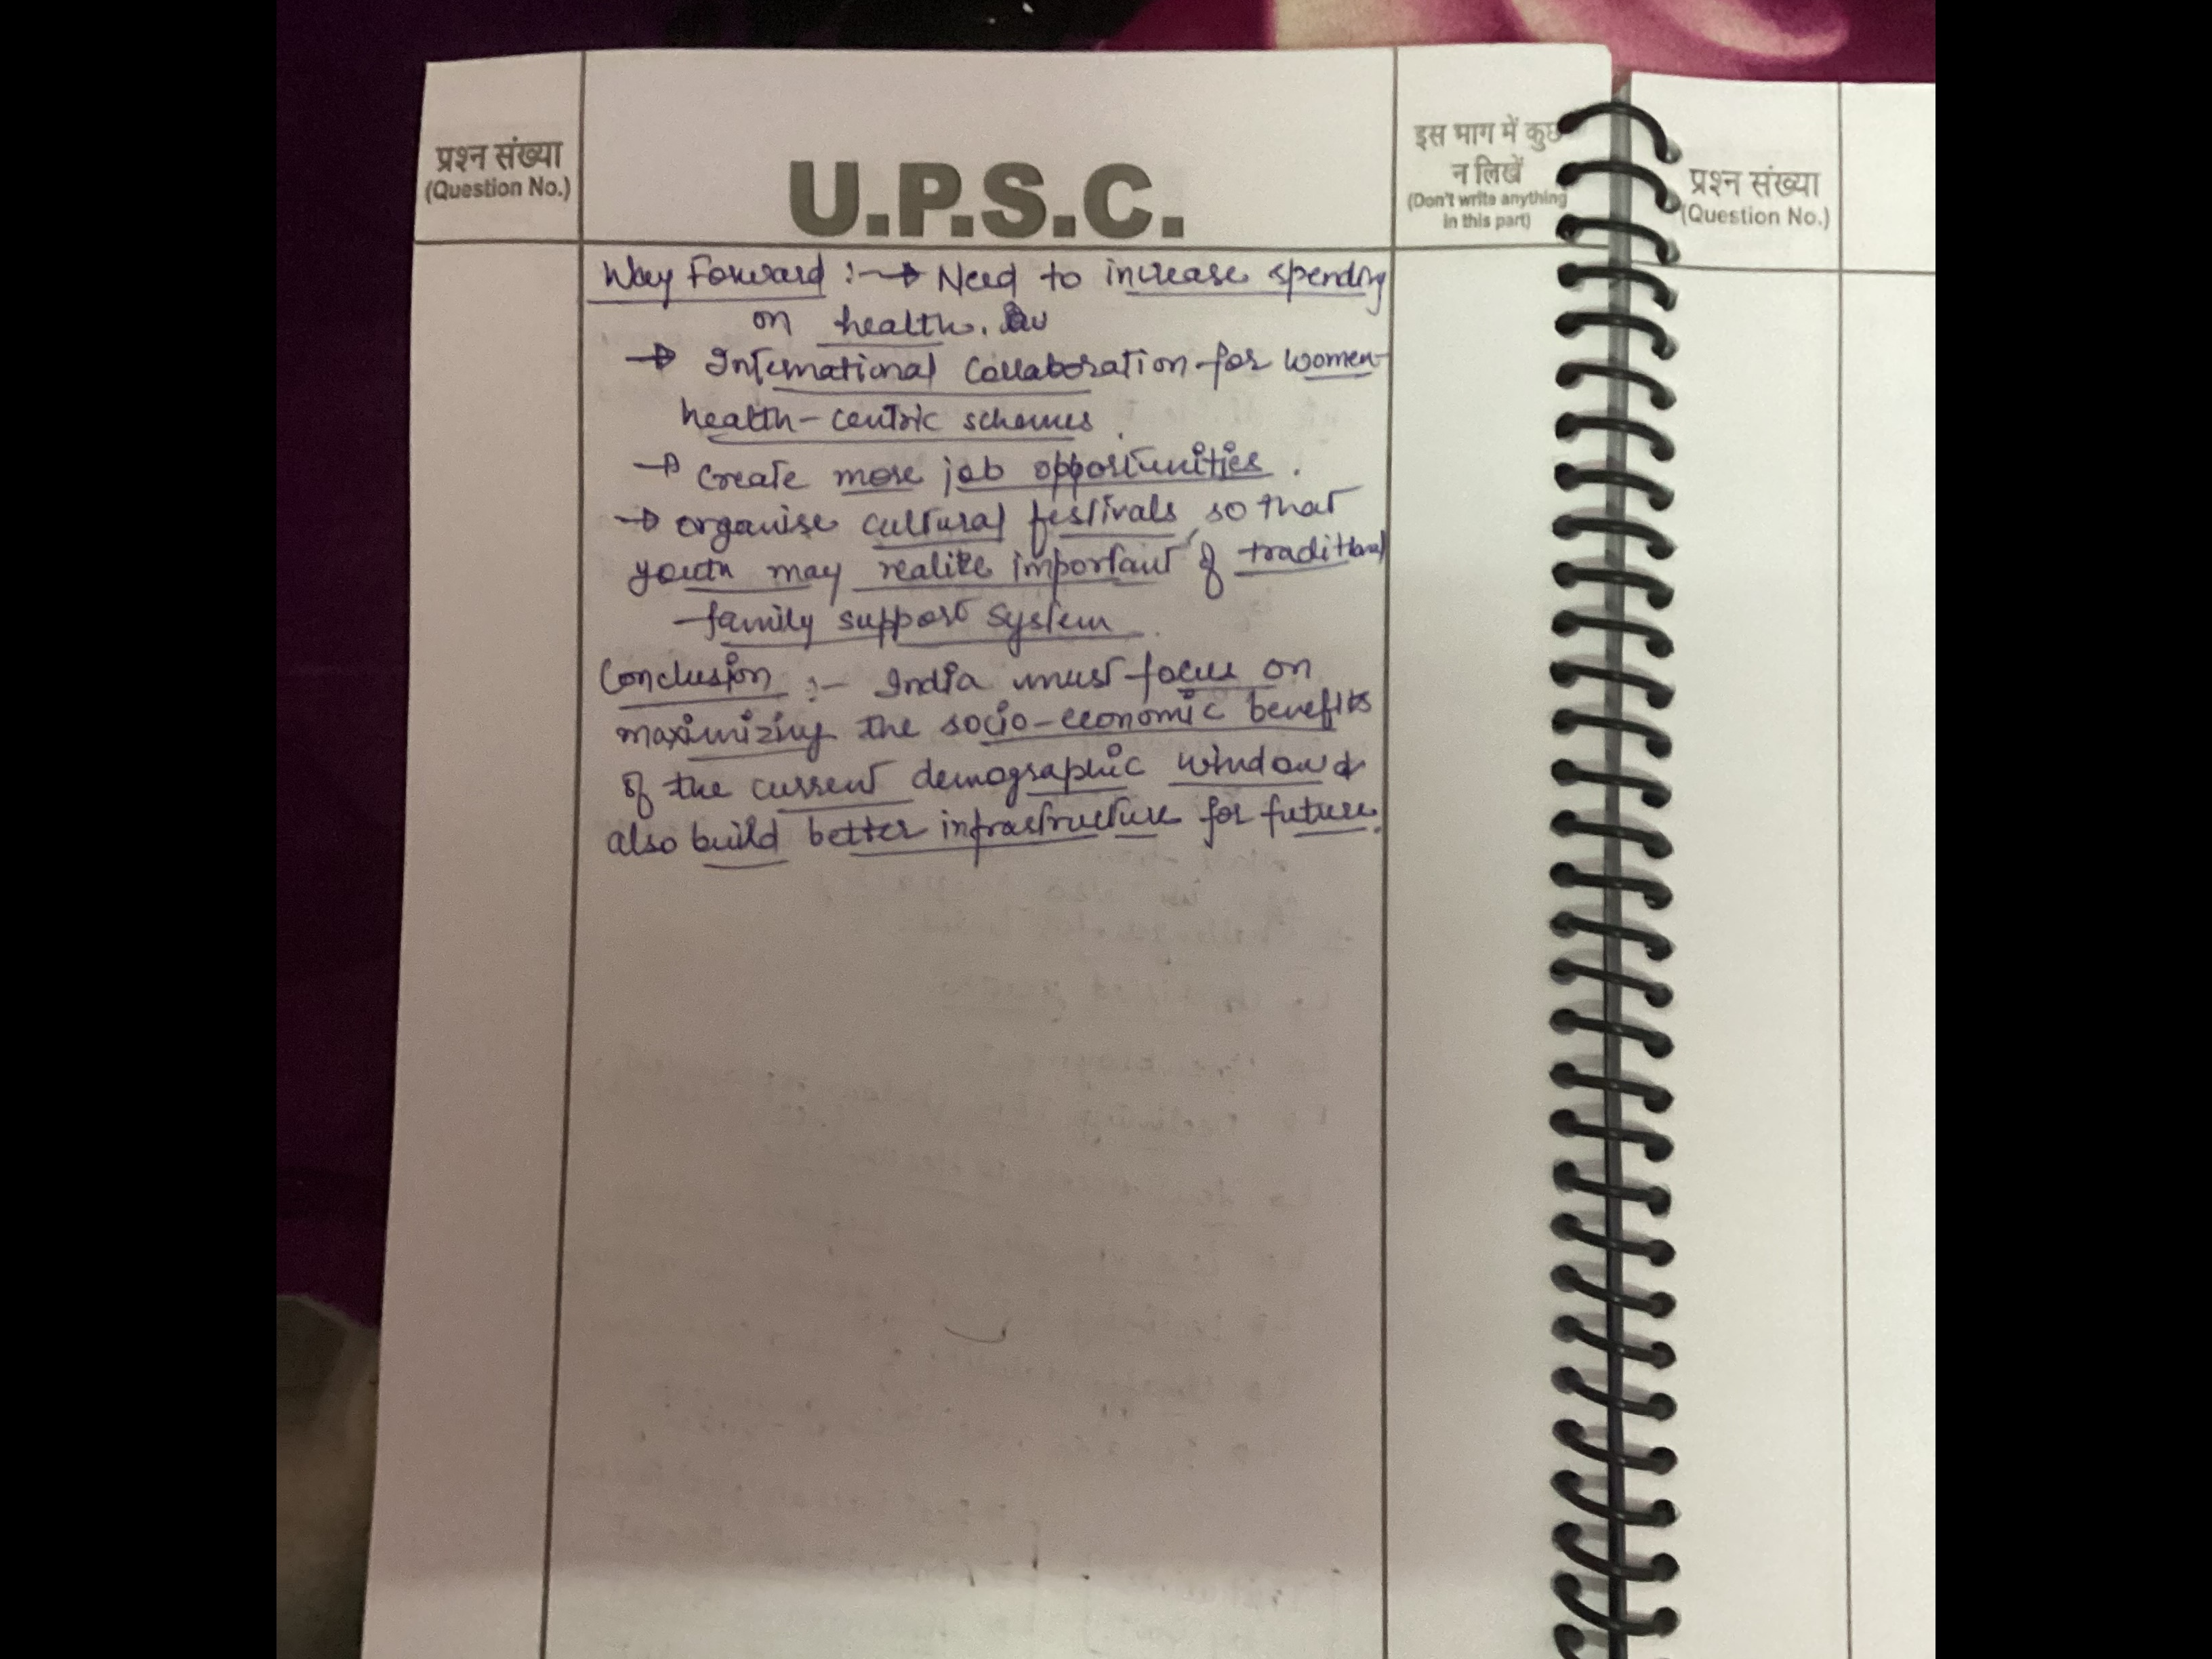 प्रश्न संख्या
(Question No.)
U.P.S.C.
इस भाग में कुछ
न लिखें
(Don't write anything
in this part)
प्रश्न संख्या
(Question No.)
Way Forward :-→ Need to increase spending
on health.
→ International Collaboration for women
health-centric schemes.
→ Create more job opportunities.
→ organise cultural festivals so that
youth may realize important of traditional
family support system.
Conclusion :- India must focus on
maximizing the socio-economic benefits
of the current demographic window &
also build better infrastructure for future.